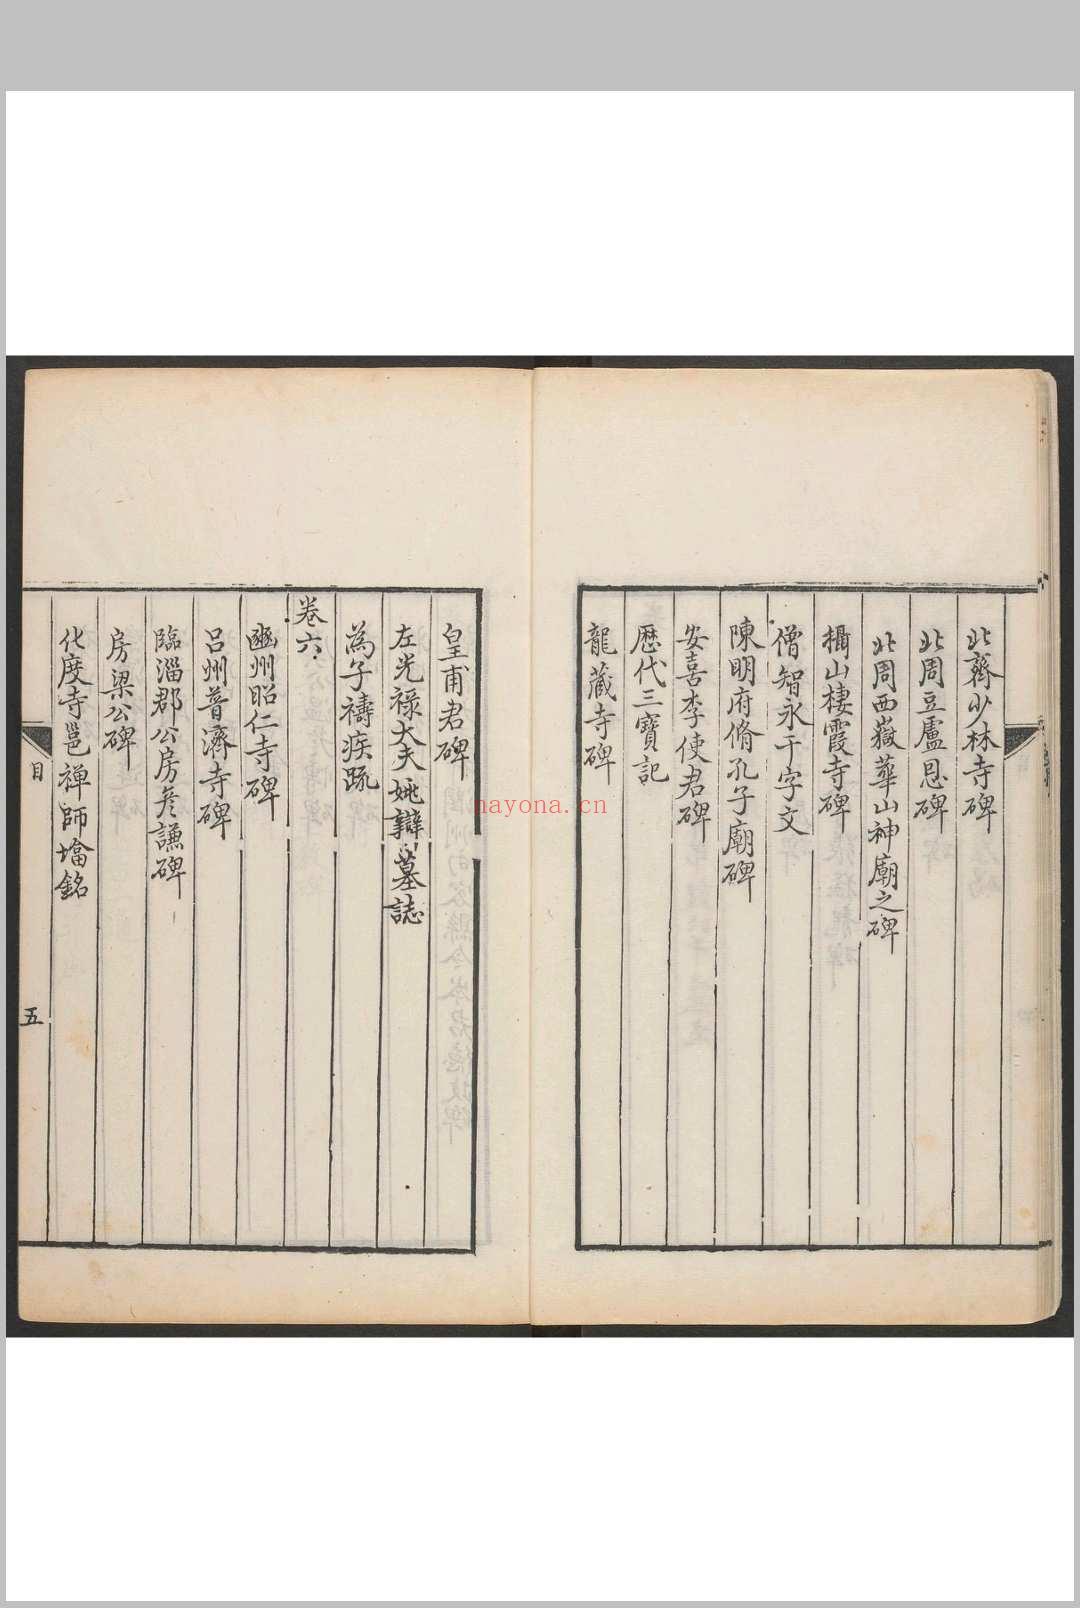 北齊少林寺碑
北周豆盧恩碑
北周西嶽華山神廟之碑
攝山棲霞寺碑
僧智永千字文
陳明府脩孔子廟碑
安喜李使君碑
歷代三寶記
龍藏寺碑
皇甫君碑
左光祿大夫姚辯墓誌
為子禱疾疏
卷六
豳州昭仁寺碑
呂州普濟寺碑
臨淄郡公房彥謙碑
房梁公碑
化度寺邕禪師墖銘
目
五
nayona.cn